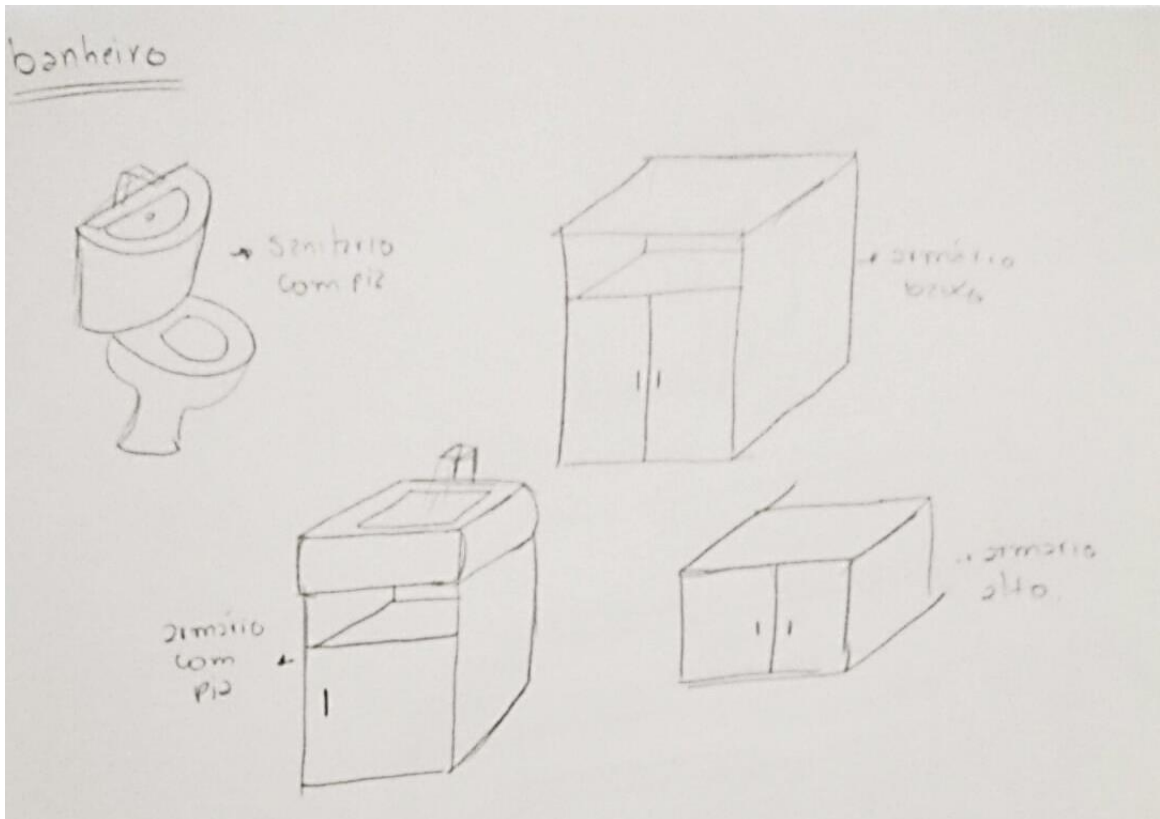 banheiro
sanitário
com pia
armário
baixo
armário
com
pia
armário
alto